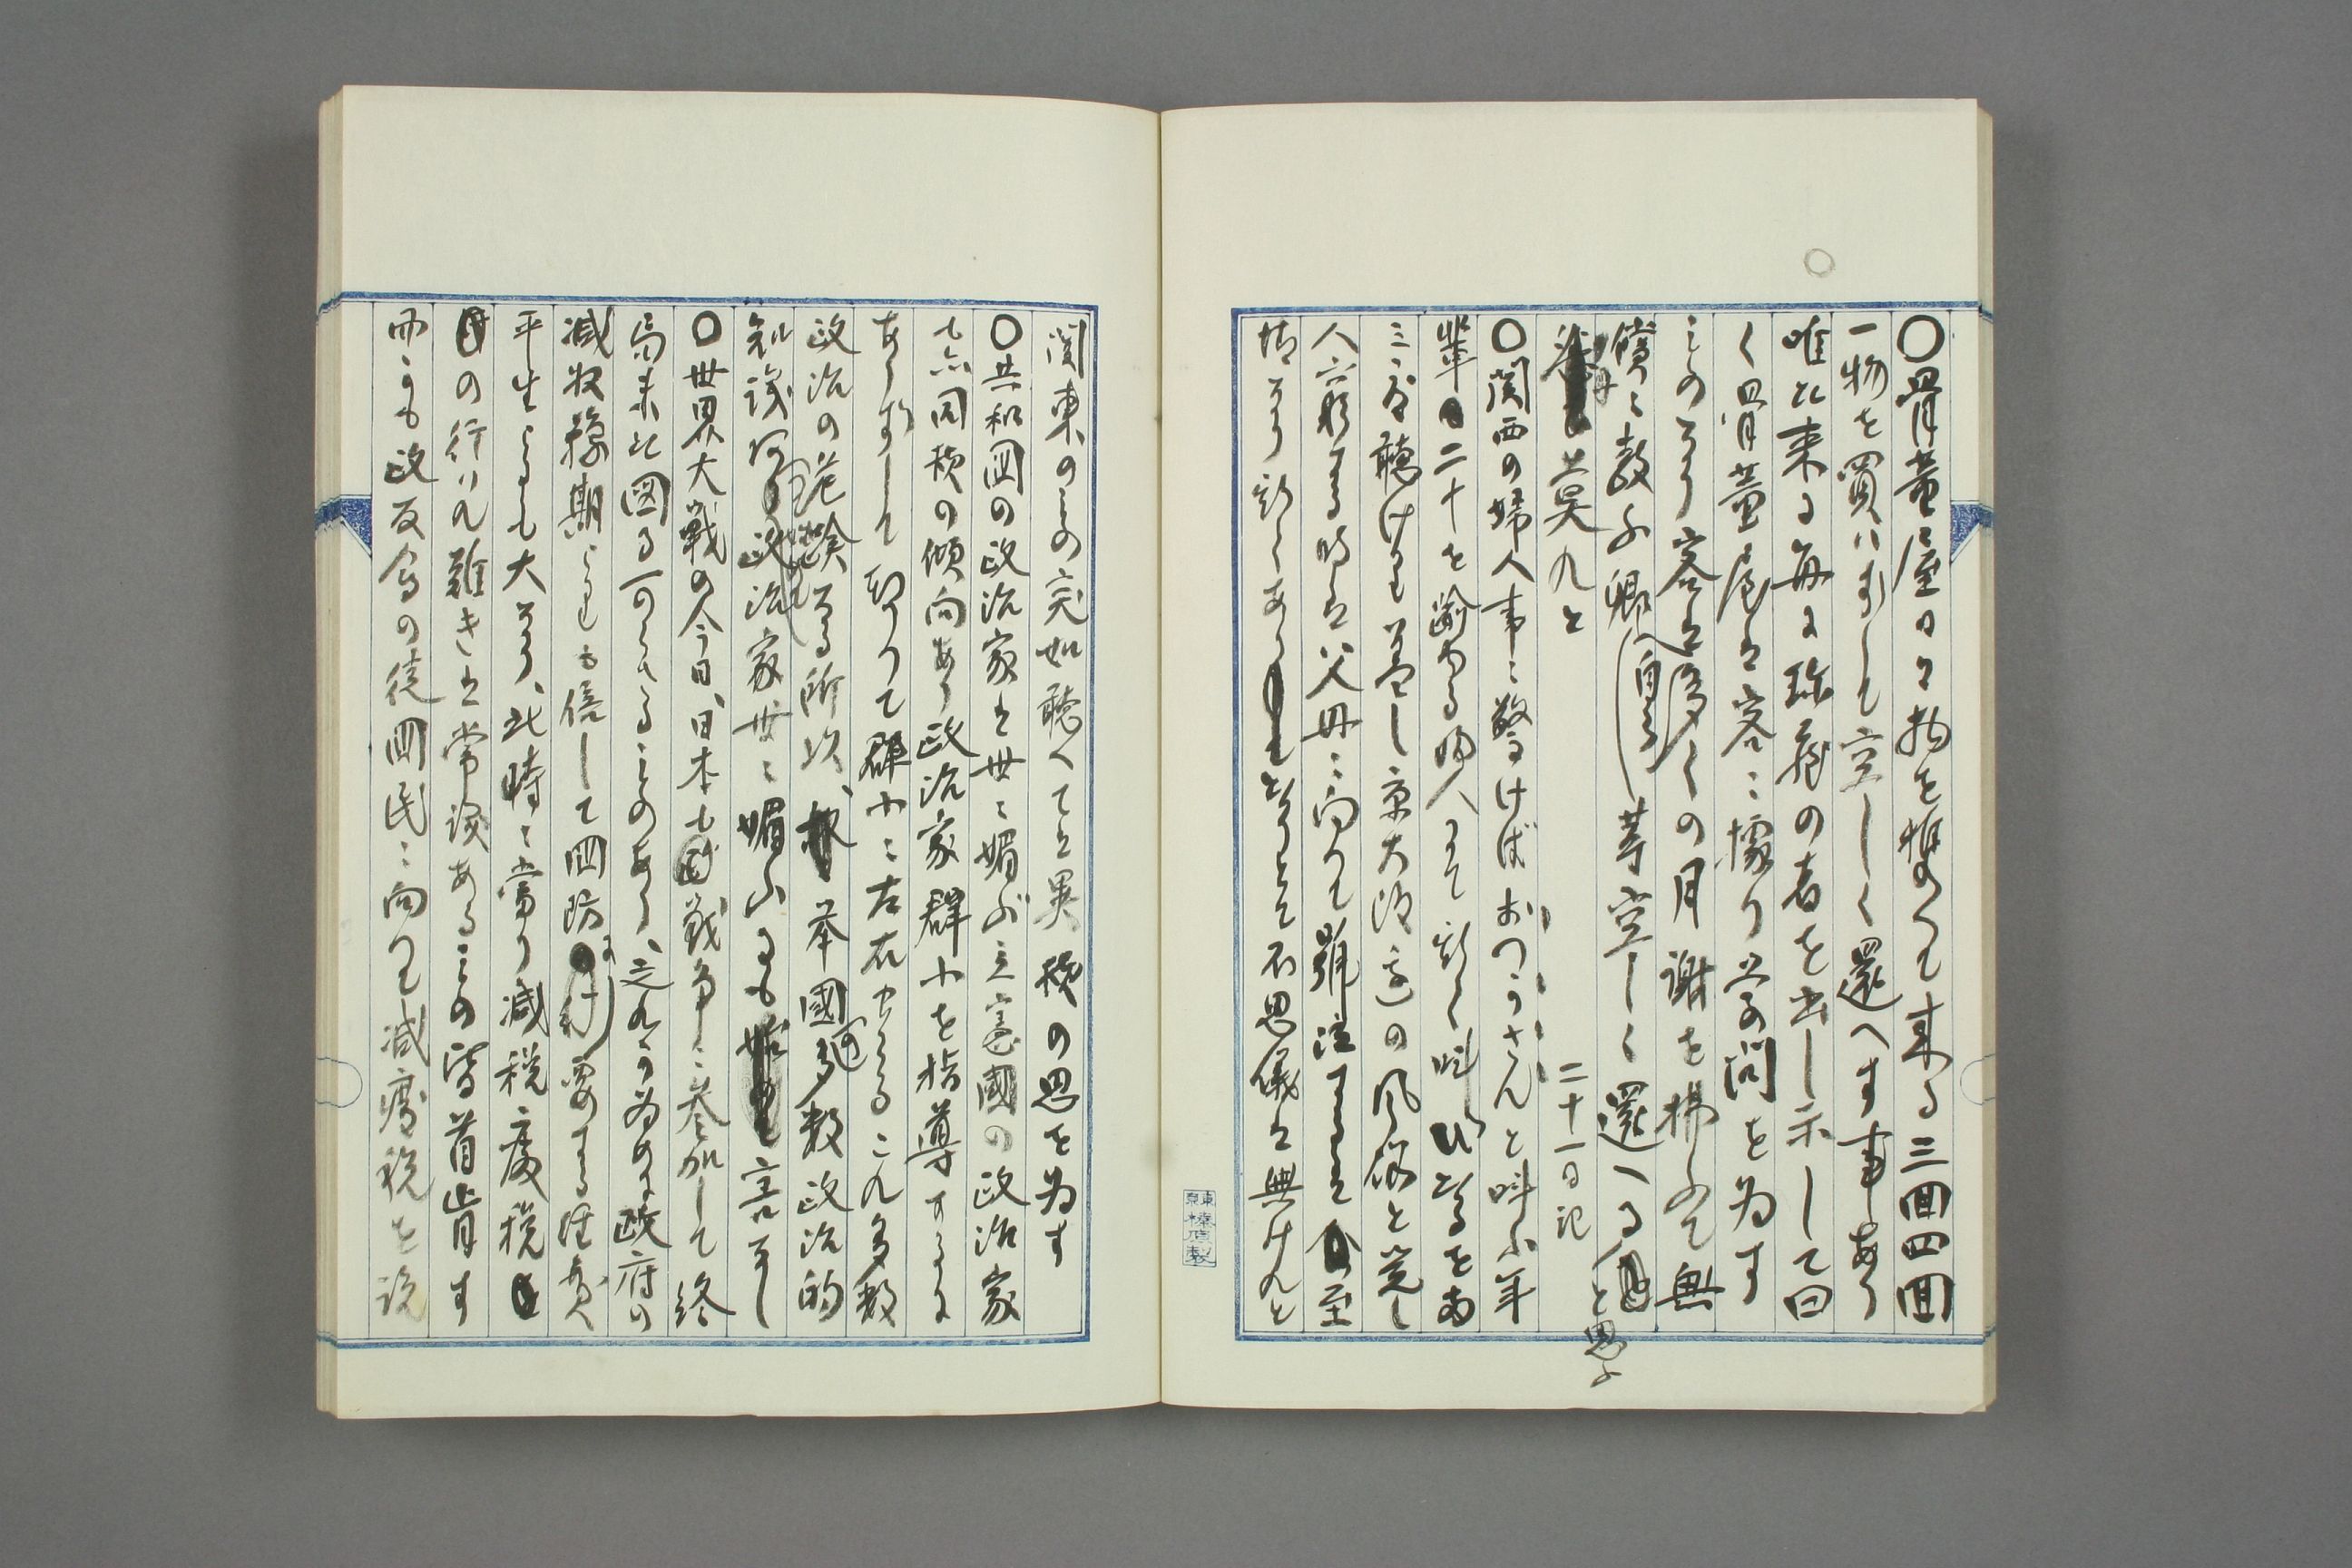 〇骨董屋日々物を携へて来る三回四回
一物を買ハずして空しく還へす事あり
唯此来る毎に珍蔵の者を出し示して曰
く骨董屋は客に據り学問を為す
ものなり客は多くの月謝を払ふて無
償に教ふ卿(自分)等空しく還へると思ふ
莫れと
二十一日記
〇関西の婦人事に驚けばおつかさんと叫ふ年
輩二十を踰ゆる婦人にて斯く叫びたるを両
三度聴けり蓋し京大阪辺の風俗と覚し
人六
時は父母に向つて號泣するは至
情なり斯くあり とて不思儀は無けれと
関東のもの突如聴へては異様の思を為す
〇共和国の政治家は世に媚び立憲國の政治家
も亦同様の傾向あり政治家群小を指導するに
あらずして却つて群小に左右せらるこれ多数
政治の危険なる所以、挙國多数政治的
知識
政治家世に媚ふるも 害なし
〇世界大戦の今日、日本も戦争に参加して終
局未た図る可らさるものあり、之れか為めに政府の
減収予期らしも倍して国防に 要する経費
平生よりも大なり、此時に當り減税廃税
の行ハれ難きは常識あるもの皆首肯す
而かも政友会の徒国民に向つて減廃税を説
東京榛原製